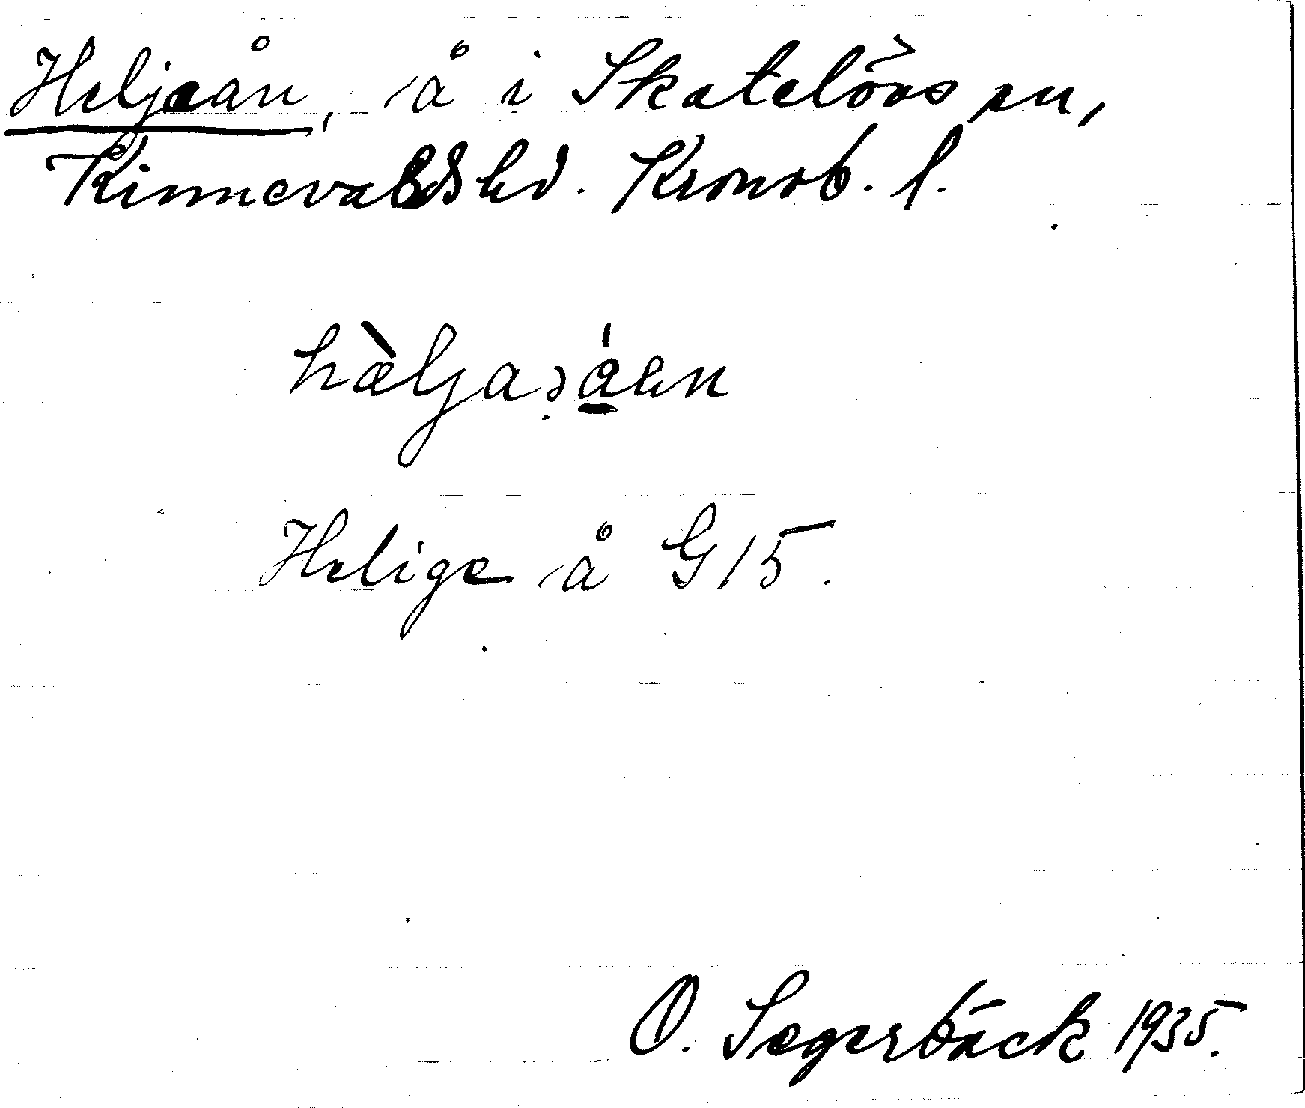 Heljeån, å i Skatelövs sn,
Kinnevalds hd. Kronob. l.
Helige å G 15.
O. Segerbäck 1935.